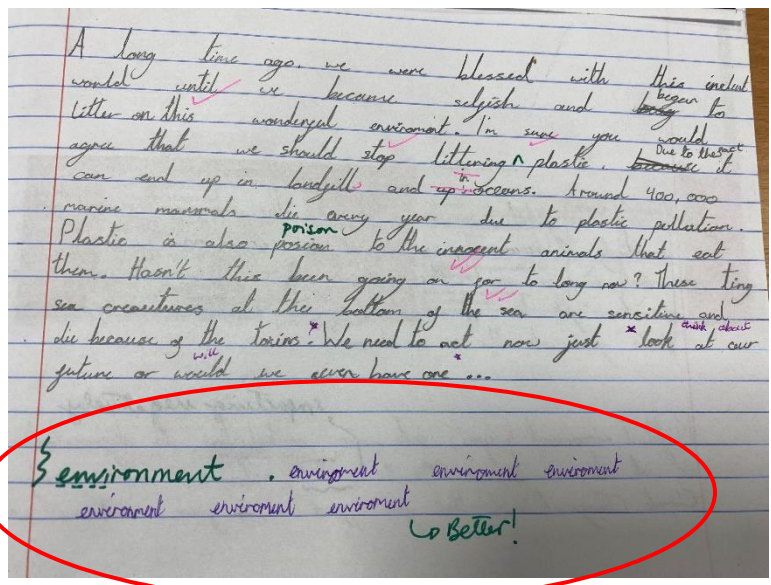 A long time ago, we were blessed with this
would until we became selfish and began to
litter on this wonderful enviroment. I'm sure you would
agree that we should stop littering ^ plastic. because Due to the fact it
can end up in landfill, and up in oceans. Around 400,000
marine mammals die every year due to plastic pollution.
Plastic is also posion poison to the innocent animals that eat
them. Hasn't this been going on for to long now? These ting
sea creautures at the bottom of the sea are sensitive and
die because of the toxins.* We need to act now just * look think about at our
future or would will we even have one* ...
environment . enviroment enviroment enviroment
enviroment enviroment enviroment
Better!